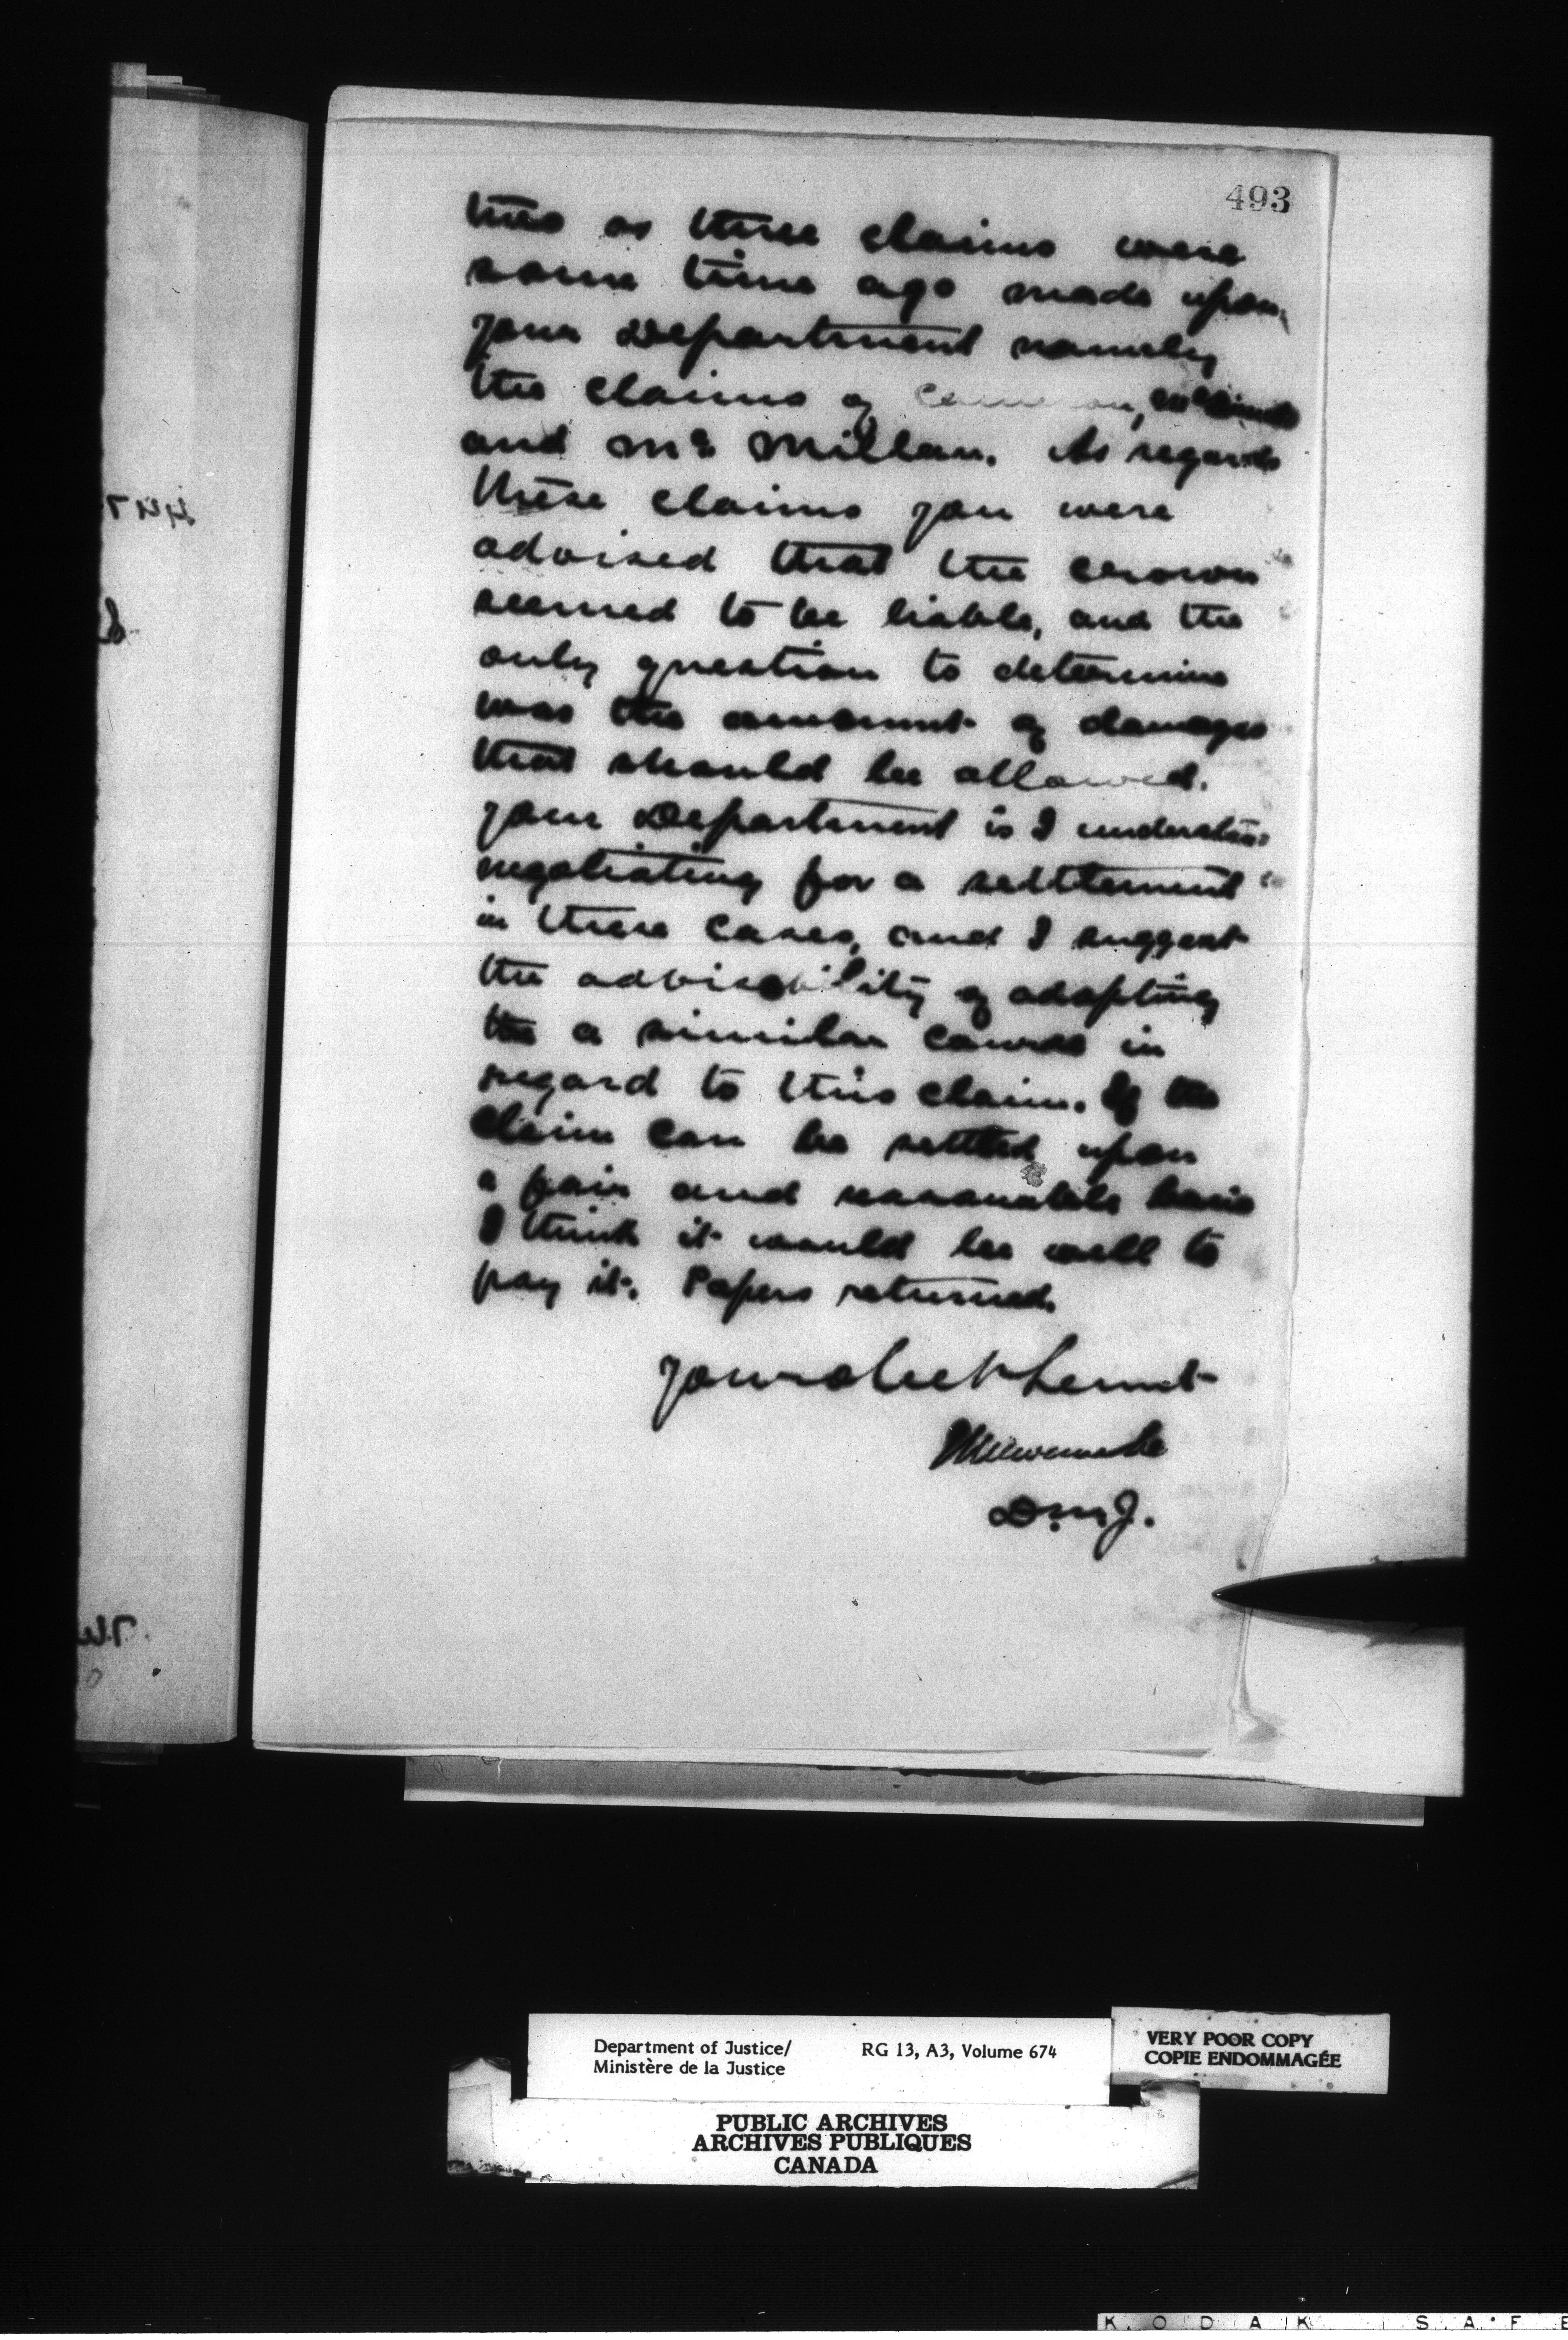 493
this as three claims were
some time ago made upon
your Department namely
the claims of Cameron,
and Mc Millan. As regards
these claims you were
advised that the crown
seemed to be liable, and the
only question to determine
was the amount of damages
that should be allowed.
Your Department is I understand
negotiating for a settlement
in these cases, and I suggest
the advisability of adopting
the a similar course in
regard to this claim. If the
claim can be settled upon
a fair and reasonable basis
I think it would be well to
pay it. Papers returned.
Your obedt Servt
D.M.J.
Department of Justice/
Ministère de la Justice
RG 13, A3, Volume 674
VERY POOR COPY
COPIE ENDOMMAGÉE
PUBLIC ARCHIVES
ARCHIVES PUBLIQUES
CANADA
KODAK SAFE